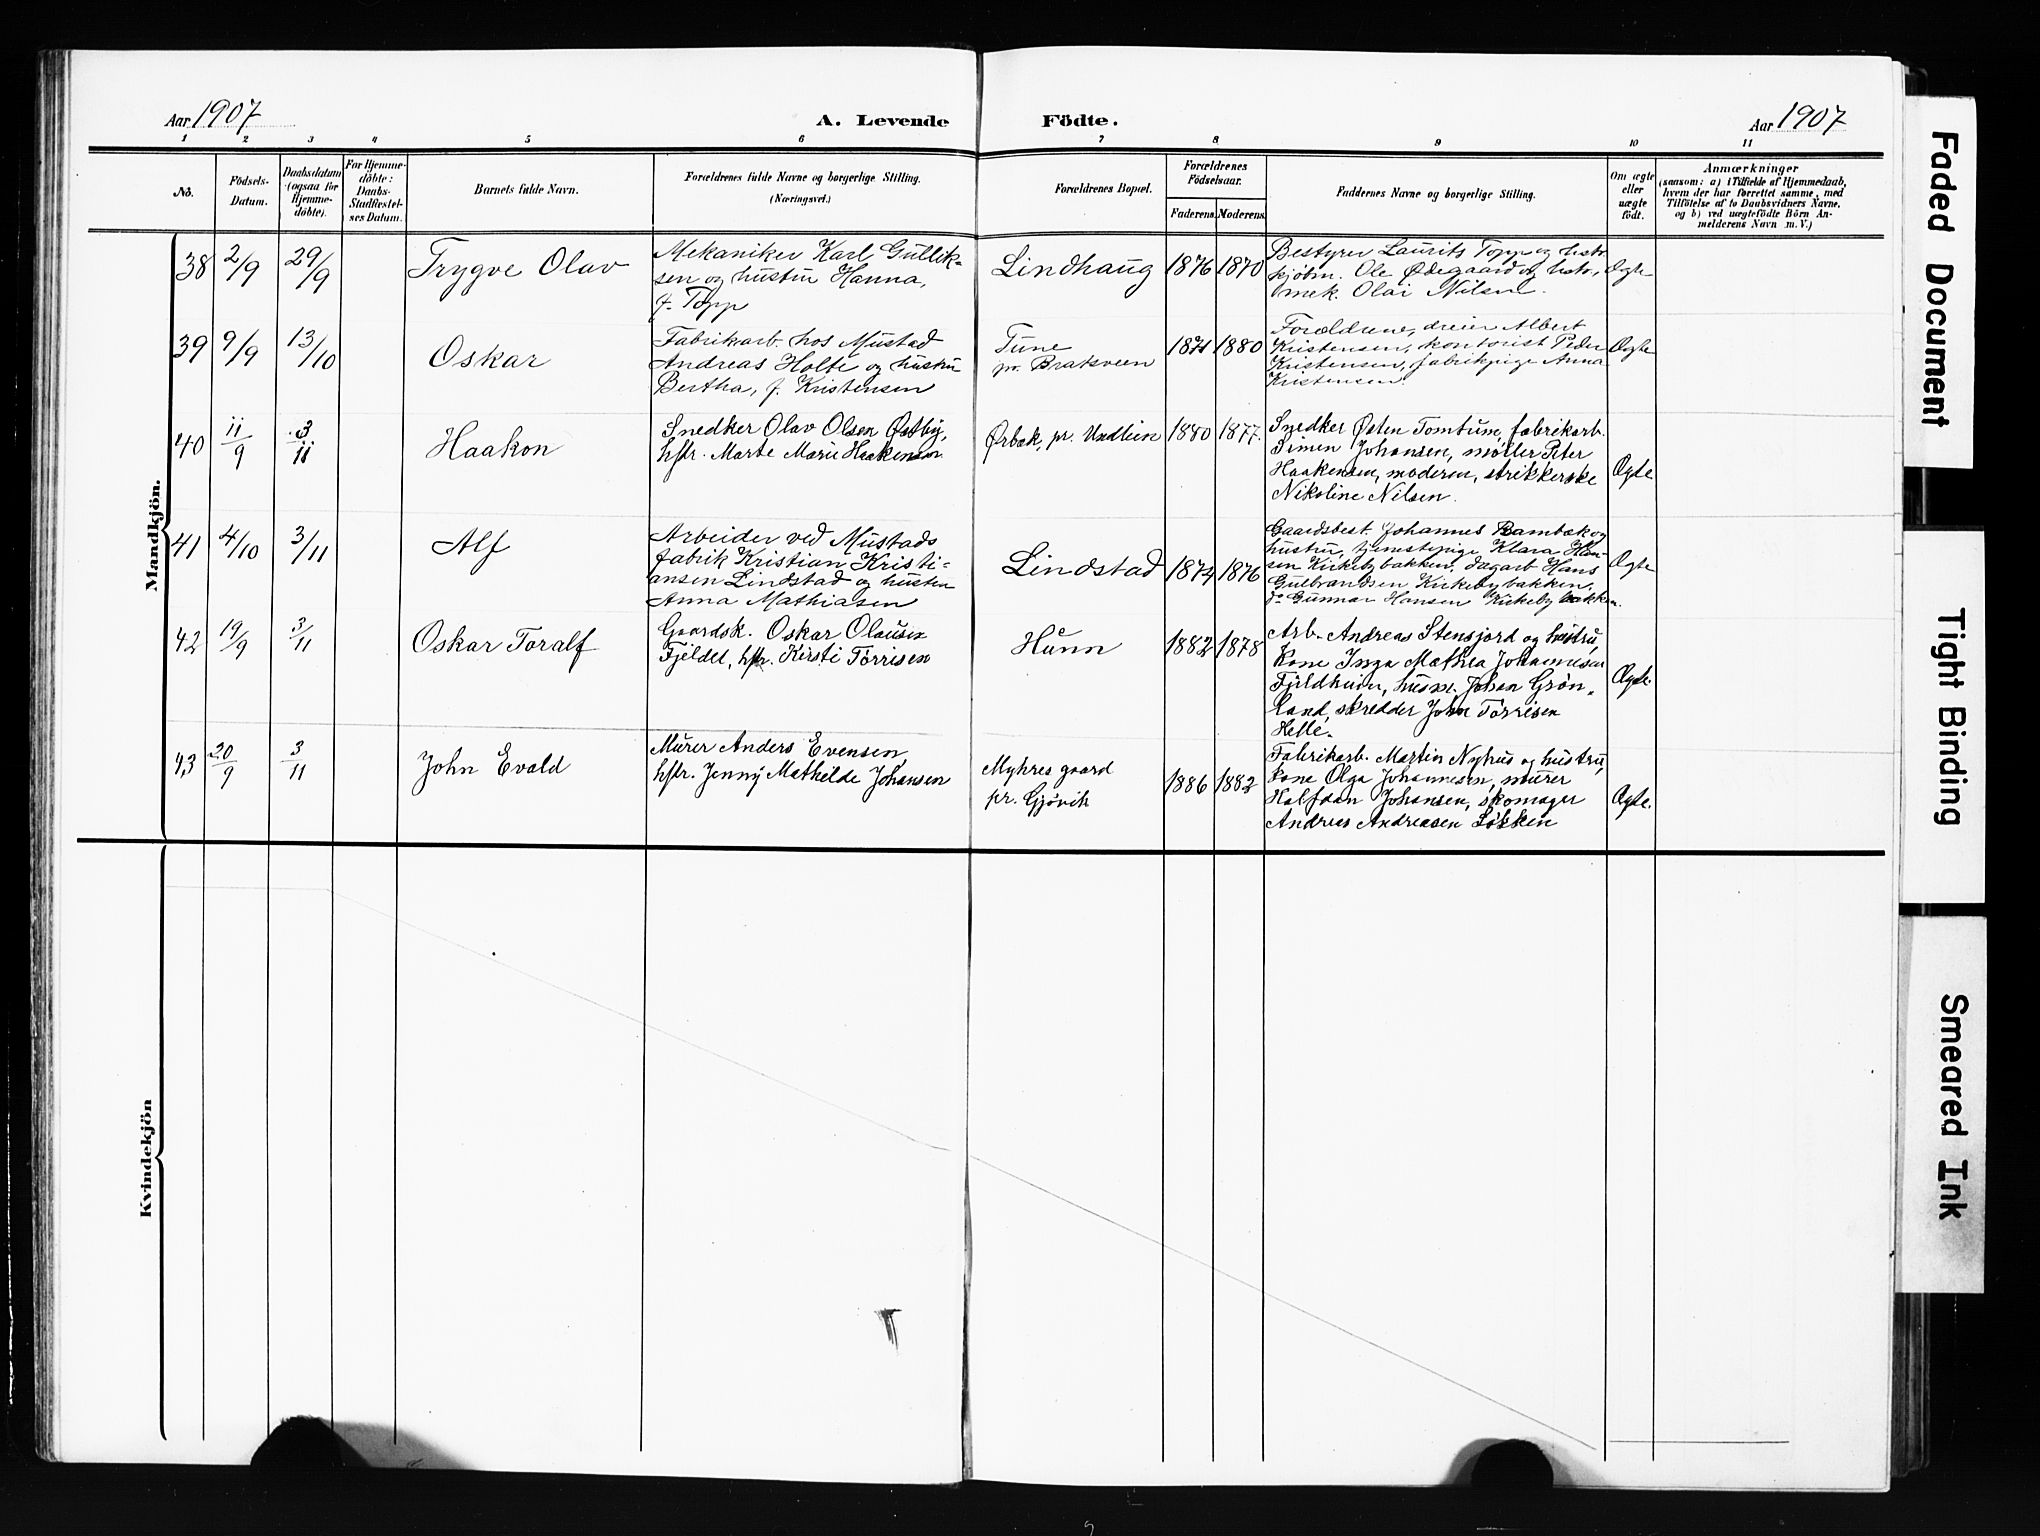 Aar 1907
A. Levende Födte.
Aar 1907
1 2 3 4 5 6 7 8 9 10 11
No.
Födsels-
Datum.
Daabsdatum
(ogsaa for
Hjemme-
döbte).
For Hjemme-
döbte:
Daabs-
Stadfæstel-
ses Datum.
Barnets fulde Navn.
Forældrenes fulde Navne og borgerlige Stilling.
(Næringsvei.)
Forældrenes Bopæl.
Forældrenes
Födselsaar.
Faderens.
Moderens.
Faddernes Navne og borgerlige Stilling.
Om ægte
eller
uægte
födt.
Anmærkninger
(saasom: a) i Tilfælde af Hjemmedaab,
hvem der har forrettet samme, med
Tilföielse af to Daabsvidners Navne,
og b) ved uægtefödte Börn An-
melderens Navn m. V.)
Mandkjön.
38 2/9 29/9 Trygve Olav
Mekaniker Karl Gullik-
sen og hustru Hanna,
f. Topp
Lindhaug 1876 1870
Bestyrer Laurits Topp og hstr.
kjøbm. Ole Ødegaard og hstr.,
mek. Olai Nilsen.
Ægte
39 9/9 13/10 Oskar
Fabrikarb. hos Mustad
Andreas Holte og hustru
Bertha, f. Kristensen
Tune
pr. Bratsveen
1871 1880
Forældrene, dreier Albert
Kristensen, kontorist Peder
Kristensen, fabrikpige Anna
Kristensen.
Ægte
40 11/9 3/11 Haakon
Snedker Olav Olsen Østby,
hstr. Marte Marie Haakensen
Ørbæk, pr. Undlien 1880 1877.
Snedker Østen Tomtum, fabrikarb.
Simen Johansen, møller Peter
Haakensen, moderen, strikkerske
Nikoline Nilsen.
Ægte
41 4/10 3/11 Alf
Arbeider ved Mustads
fabrik Kristian Kristi-
ansen Lindstad og hustru
Anna Mathiasen
Lindstad 1874 1876
Gaardsbest. Johannes Bambæk og
hustru, tjenestepige Klara Han-
sen Kirkebybakken, dagarb. Hans
Gulbrandsen Kirkebybakken,
do Gunnar Hansen Kirkebybakken.
Ægte
42 19/9 3/11 Oskar Toralf
Gaardsk. Oskar Olausen
Fjeldet, hstr. Kirsti Torrisen
Hunn 1882 1878
Arb. Andreas Stensjord og hustru,
kone Inga Mathea Johannesen
Fjeldheim, husm. Johan Grøn-
land, skredder John Torrisen
Helle.
Ægte.
43 20/9 3/11 John Evald
Murer Anders Evensen,
hstr. Jenny Mathilde Johansen
Myhres gaard
pr. Gjøvik
1886 1882
Fabrikarb. Martin Nyhus og hustru,
kone Olga Johannesen, murer
Halfdan Johansen, skomager
Andreas Andreasen Løkken
Ægte.
Kvindekjön
Faded Document
Tight Binding
Smeared Ink